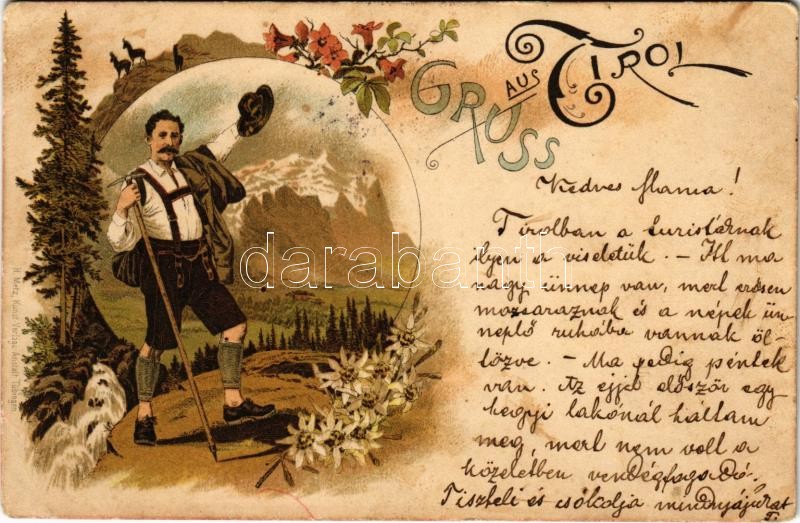 GRUSS
AUS
TIROL
Kedves Mama!
Tirolban a turistáknak
ilyen a viseletük. - Itt ma
nagy ünnep van, mert erősen
mozsaraznak és a népek ün
neplő ruhába vannak öl-
tözve. - Ma pedig péntek
van. Az éjjel először egy
hegyi lakónál háltam
meg, mert nem volt a
közeletben vendégfogadó.
Tiszteli és csókolja mindnyájukat
T.
darabanth